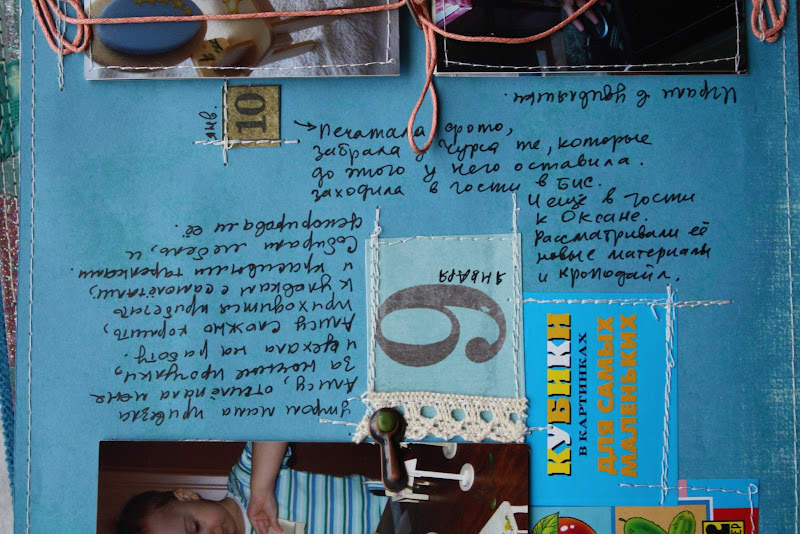 Играли в удивляшки.
10
янв.
Печатала фото,
забрала у Чурса те, которые
до этого у него оставила.
Заходила в гости в Бис.
И ещё в гости
к Оксане.
Рассматривали её
новые материалы
и кроподайл.
9
января
Утром мама привезла
Алису, отшлёпала меня
за ночные прогулки,
и уехала на работу.
Алису сложно кормить,
приходится прибегать
к уловкам с самолётами,
и красивыми тарелками.
Собирали мебель, и
декорировали её.
КУБИКИ
В КАРТИНКАХ
ДЛЯ САМЫХ
МАЛЕНЬКИХ